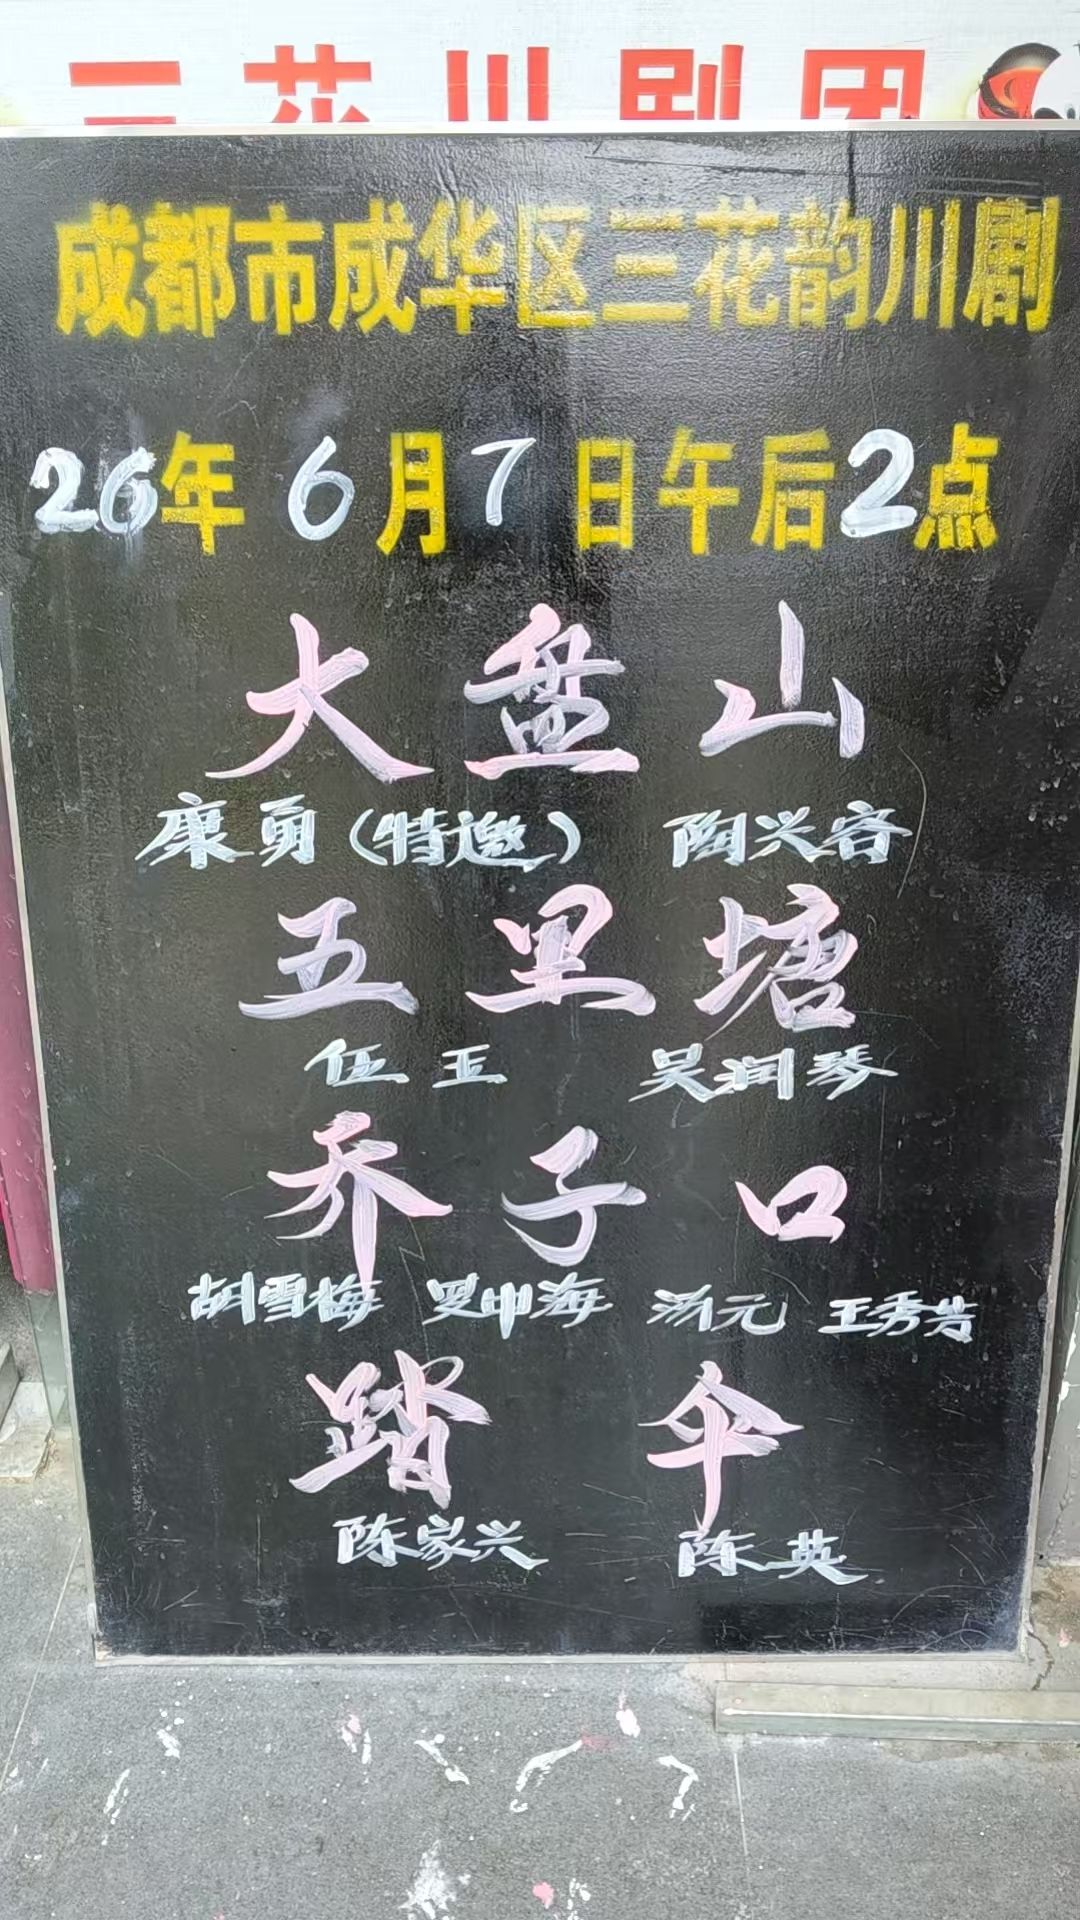 三花川剧团
成都市成华区三花韵川剧
26年6月7日午后2点
大盘山
康勇（特邀） 陶兴容
五里塘
伍玉 吴润琴
乔子口
胡雪梅 罗中海 汤元 王秀芳
踏伞
陈家兴 陈英